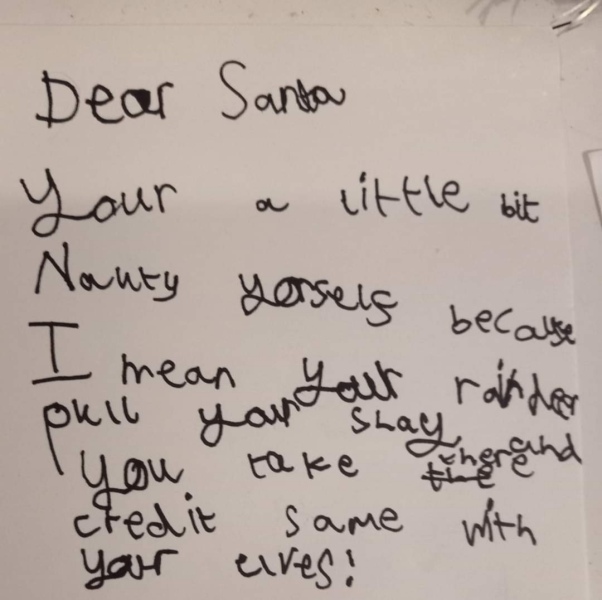 Dear Santa
Your a little bit
Nauty yorself because
I mean your rainder
pull your slay and
you take there
credit same with
your elves!